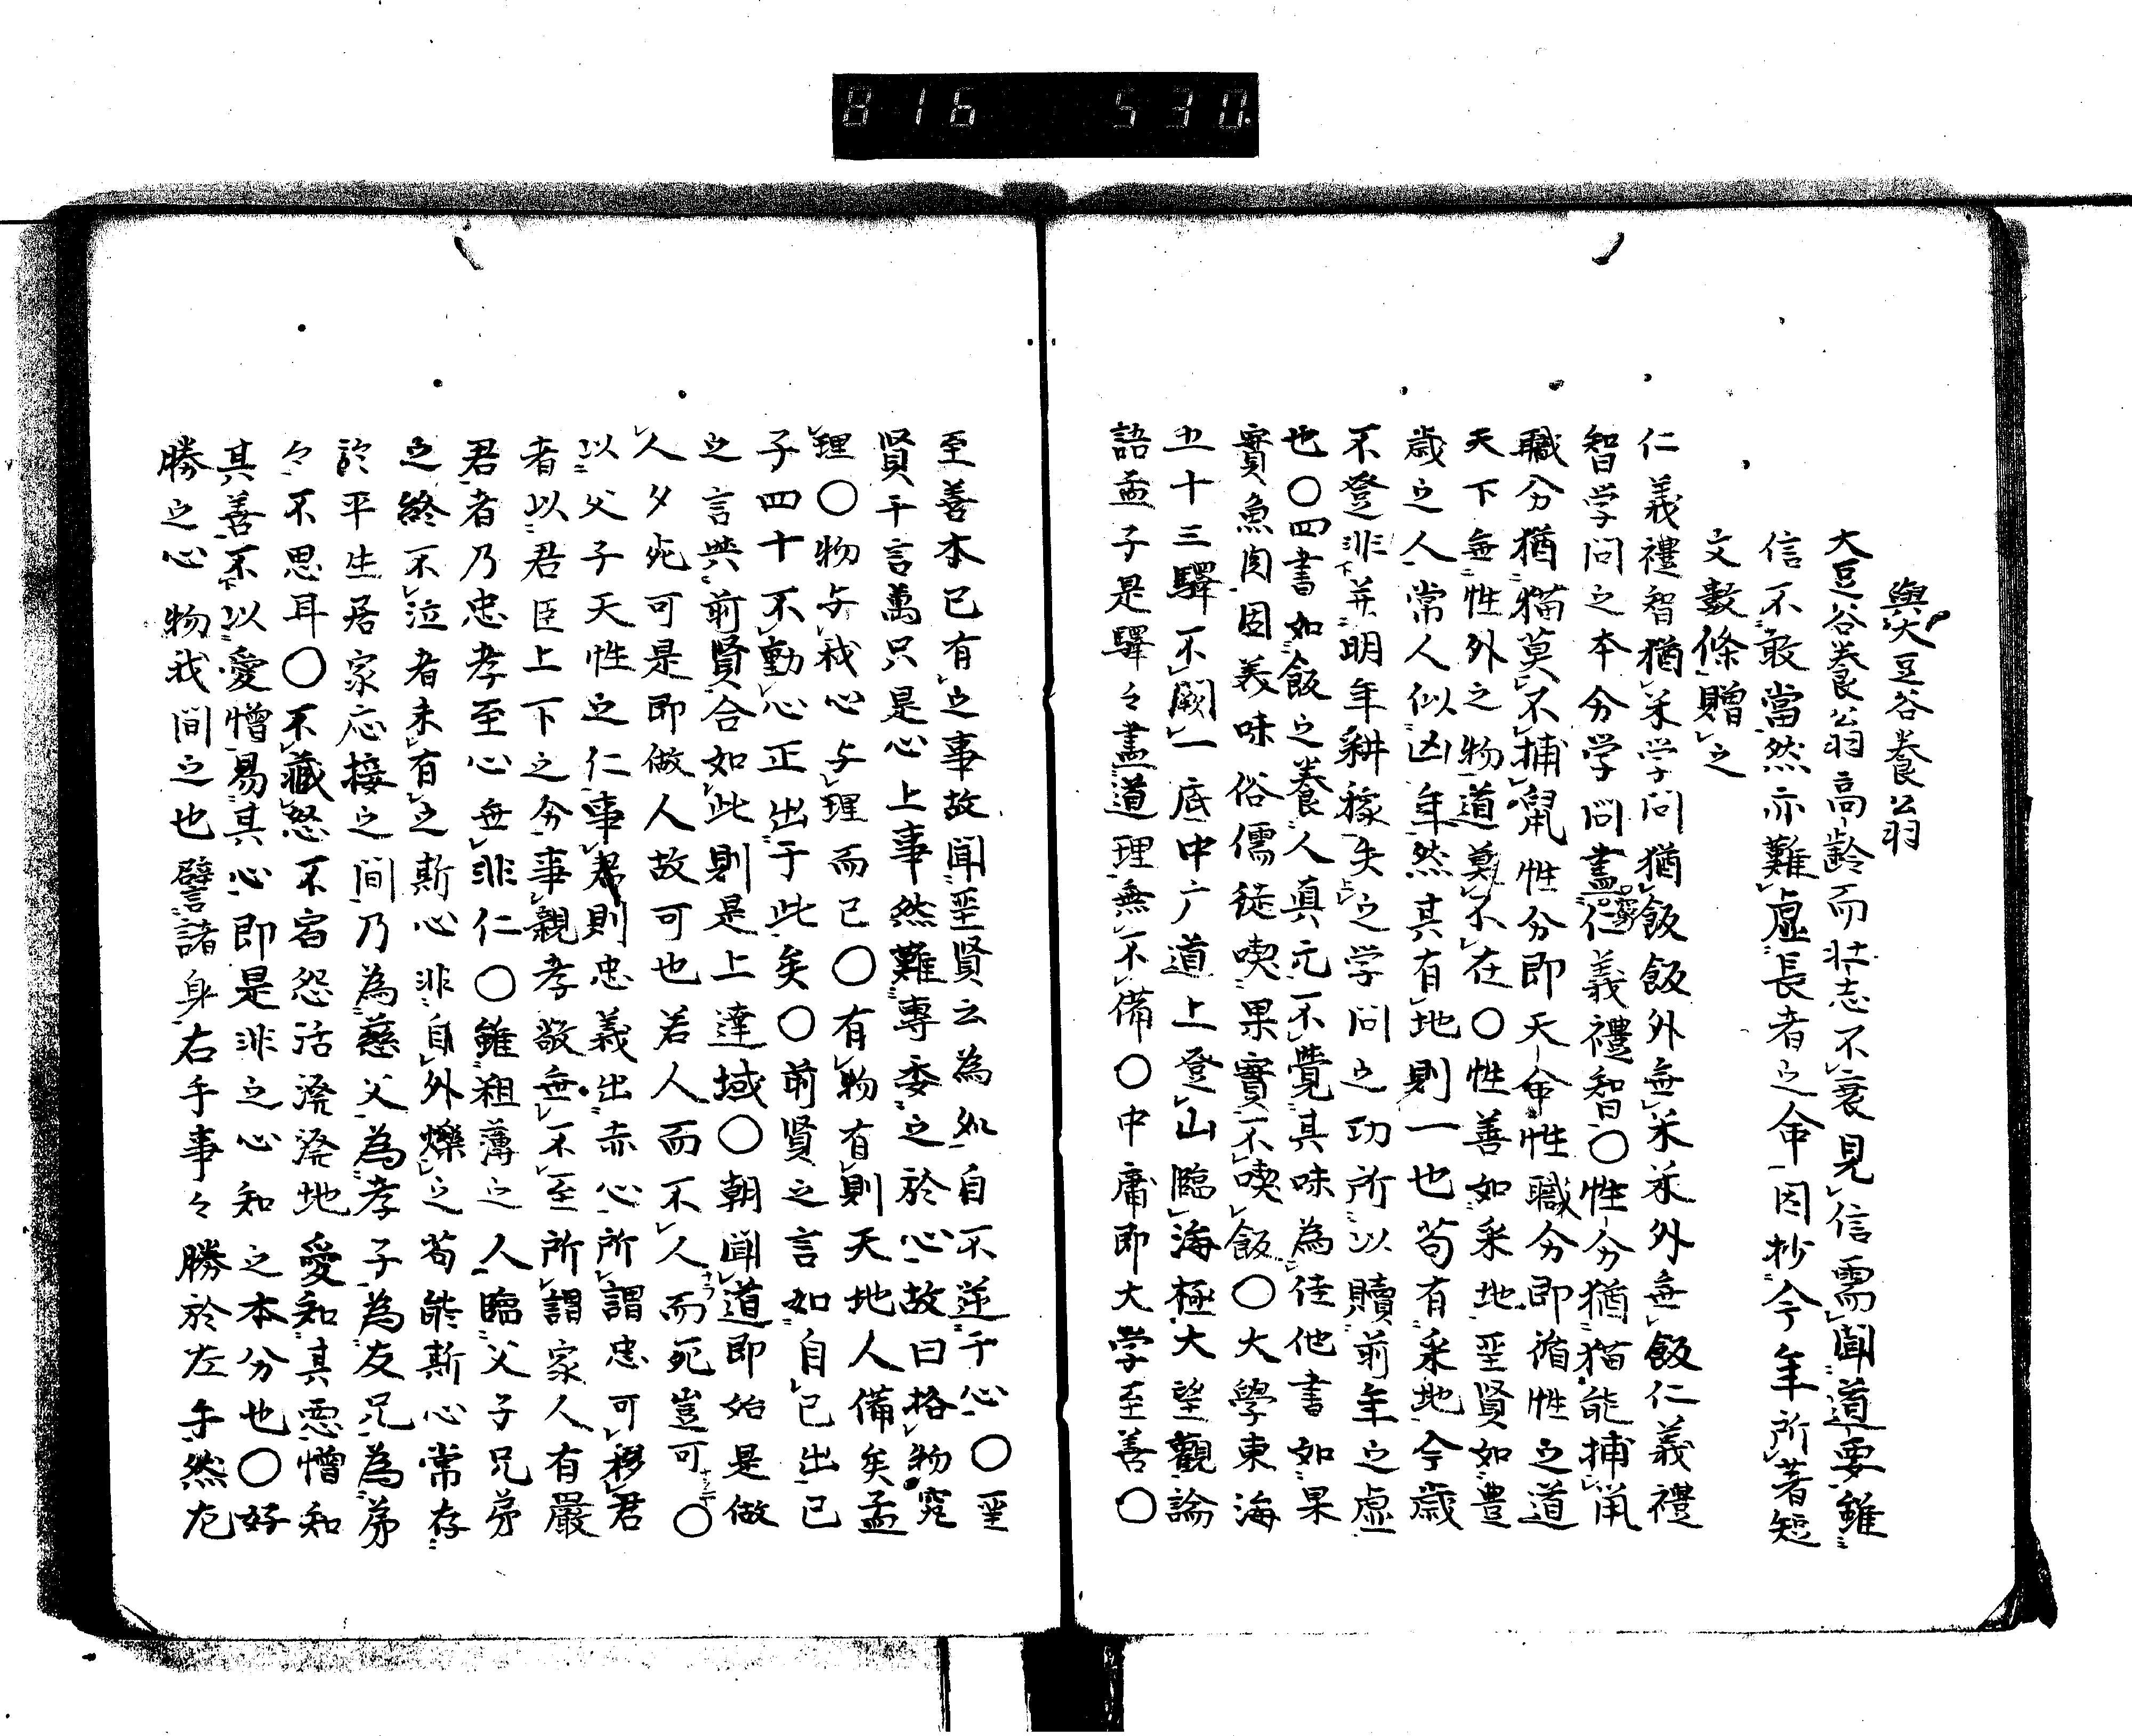 816 530
與大豆谷養公羽
大豆谷養公羽高齢而壮志不衰見信需聞道要雖
信不敢當然亦難虚長者之命因抄今年所著短
文數條贈之
仁義禮智猶米学問猶飯飯外無米米外無飯仁義禮
智学問之本分学問盡仁義禮智〇性分猶猫能捕鼠
職分猶猫莫不捕鼠性分即天命性職分即循性之道
天下無性外之物道莫不在〇性善如采地聖賢如豊
歳之人常人似凶年然其有地則一也苟有采地今歳
不登非并明年耕稼失之学問之功所以贖前年之虚
也〇四書如飯之養人真元不覺其味為佳他書如果
實魚肉固美味俗儒徒喫果實不喫飯〇大學東海
五十三驛不闕一底中庸道上登山臨海極大望觀論
語孟子是驛々盡道理無不備〇中庸即大学至善〇
至善本已有之事故聞聖賢云為如自不逆于心〇聖
賢千言萬只是心上事然難專委之於心故曰格物窮
理〇物与我心与理而已〇有物有則天地人備矣孟
子四十不動心正出于此矣〇前賢之言如自己出己
之言與前賢合如此則是上達域〇朝聞道即始是做
人夕死可是即做人故可也若人而不人而死豈可〇
以父子天性之仁事君則忠義出赤心所謂忠可移君
者以君臣上下之分事親孝敬無不至所謂家人有嚴
君者乃忠孝至心無非仁〇雖粗薄之人臨父子兄弟
之終不泣者未有之斯心非自外爍之苟能斯心常存
於平生居家応接之間乃為慈父為孝子為友兄為弟
々不思耳〇不藏怒不宿怨活溌溌地愛和其悪憎和
其善不以愛憎易其心即是非之心和之本分也〇好
勝之心物我間之也譬諸身右手事々勝於左手然左